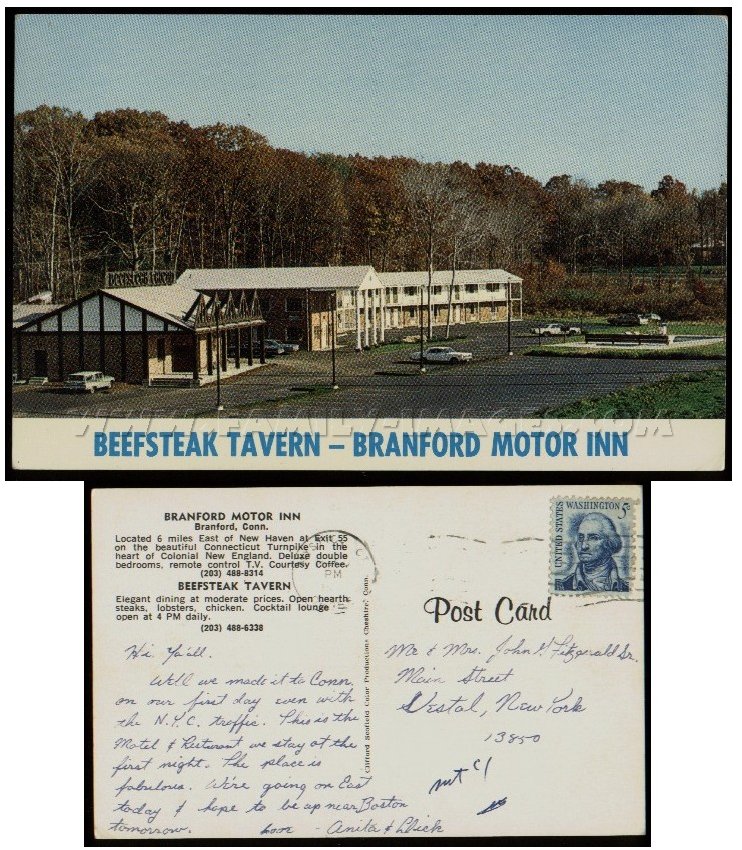 BEEFSTEAK TAVERN
WWW.FAMILYIMAGES.COM
BEEFSTEAK TAVERN – BRANFORD MOTOR INN
BRANFORD MOTOR INN
Branford, Conn.
Located 6 miles East of New Haven at Exit 55
on the beautiful Connecticut Turnpike in the
heart of Colonial New England. Deluxe double
bedrooms, remote control T.V. Courtesy Coffee.
(203) 488-8314
BEEFSTEAK TAVERN
Elegant dining at moderate prices. Open hearth
steaks, lobsters, chicken. Cocktail lounge
open at 4 PM daily.
(203) 488-6338
Hi Ya'all.
Well we made it to Conn.
on our first day even with
the N.Y.C. traffic. This is the
Motel & Resturant we stay at the
first night. The place is
fabulous. We're going on East
today & hope to be up near Boston
tomorrow.
- Anita & Dick
Clifford Scofield Color Productions Cheshire, Conn.
PM
UNITED STATES
WASHINGTON 5c
Post Card
Mr & Mrs. John Fitzgerald Sr.
Main Street
Vestal, New York
13850